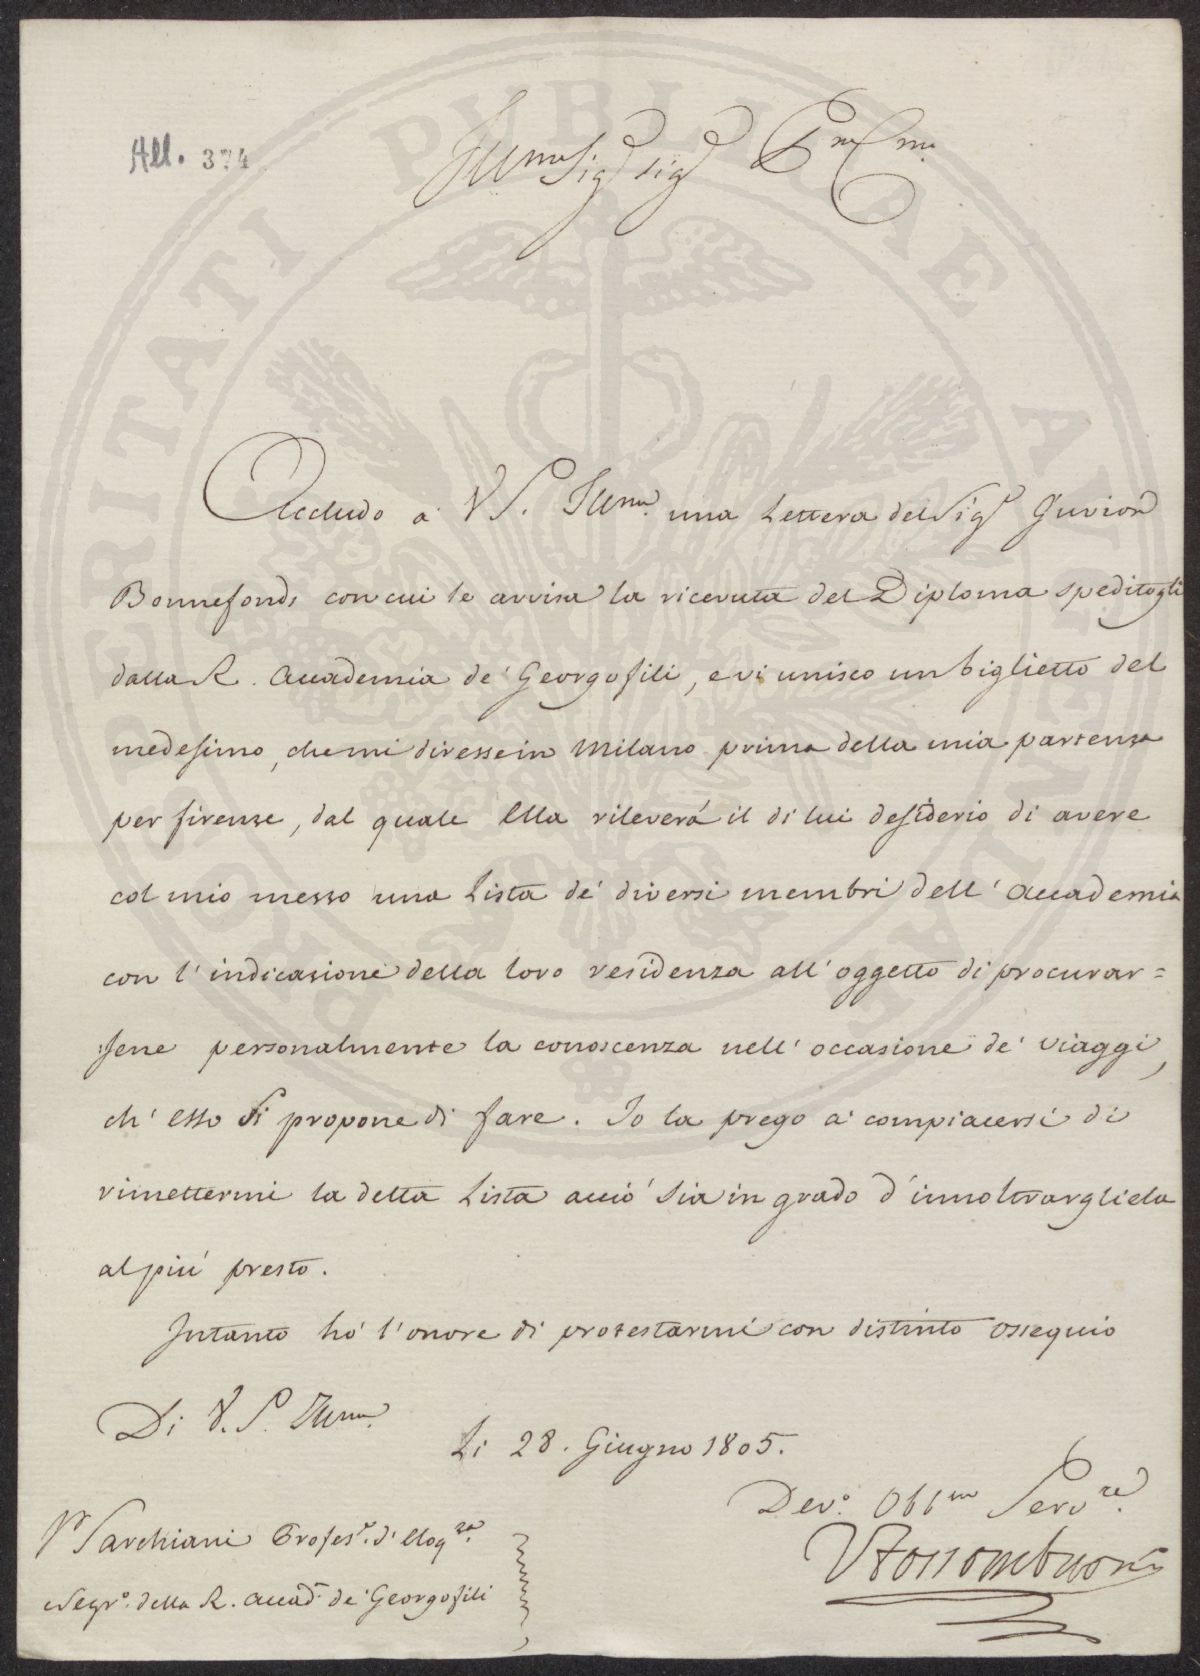 All. 374
Illmo Sig.r Sig.r P.ne Col.mo
Accludo a' V. S. Illma. una Lettera del Sig.r Guvion
Bonnefonds con cui le avvisa la ricevuta del Diploma speditogli
dalla R. Accademia de' Georgofili, e vi unisco un biglietto del
medesimo, che mi diresse in Milano prima della mia partenza
per firenze, dal quale Ella rileverá il di lui desiderio di avere
col mio mezzo una Lista de' diversi membri dell' Accademia
con l' indicazione della loro residenza all' oggetto di procurar=
sene personalmente la conoscenza nell' occasione de' viaggi,
ch' esso si propone di fare. Io la prego a' compiacersi di
rimettermi la detta Lista acció sia in grado d' innoltrargliela
al piú presto.
Intanto hó l' onore di protestarmi con distinto ossequio
Di V. S. Illma.
Li 28. Giugno 1805.
Dev.o Obb.mo Serv.re
V Fossombroni
Sr Sarchiani Profes.r d' Eloq.za
Segr.o della R. Accad. de' Georgofili
PROSPERITATI PUBLICAE AUGENDAE